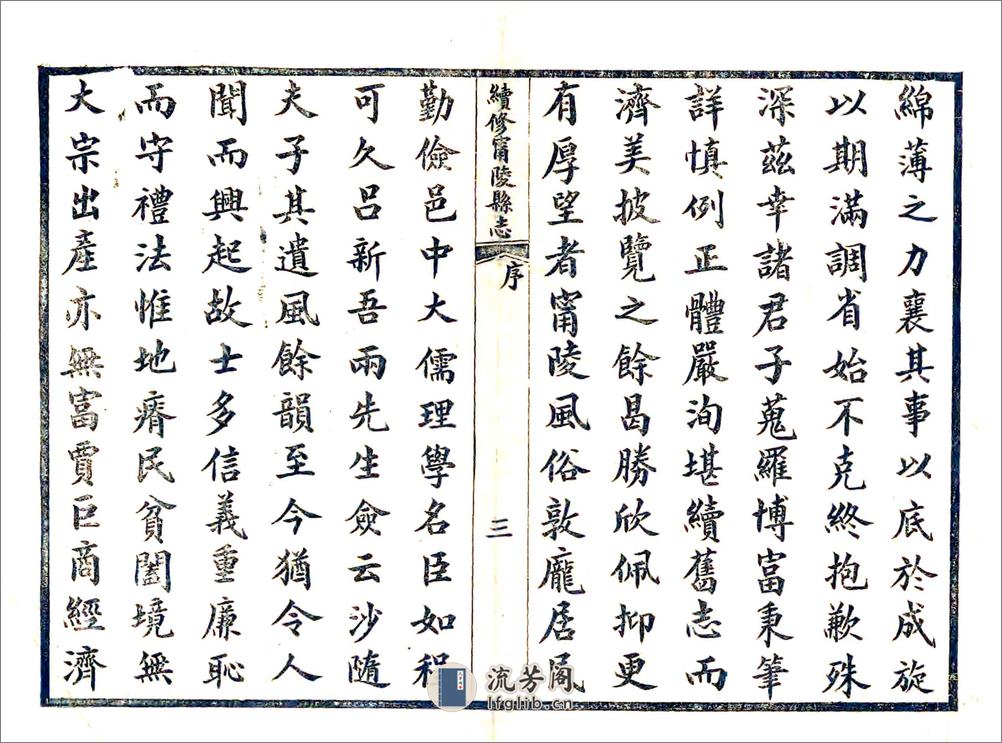 綿薄之力襄其事以底於成旋
以期滿調省始不克終抱歉殊
深茲幸諸君子蒐羅博富秉筆
詳慎例正體嚴洵堪續舊志而
濟美披覽之餘曷勝欣佩抑更
有厚望者甯陵風俗敦龐居民
續修甯陵縣志
序
三
勤儉邑中大儒理學名臣如程
可久呂新吾兩先生僉云沙隨
夫子其遺風餘韻至今猶令人
聞而興起故士多信義重廉恥
而守禮法惟地瘠民貧闔境無
大宗出產亦無富賈巨商經濟
流芳阁
lfglib.cn